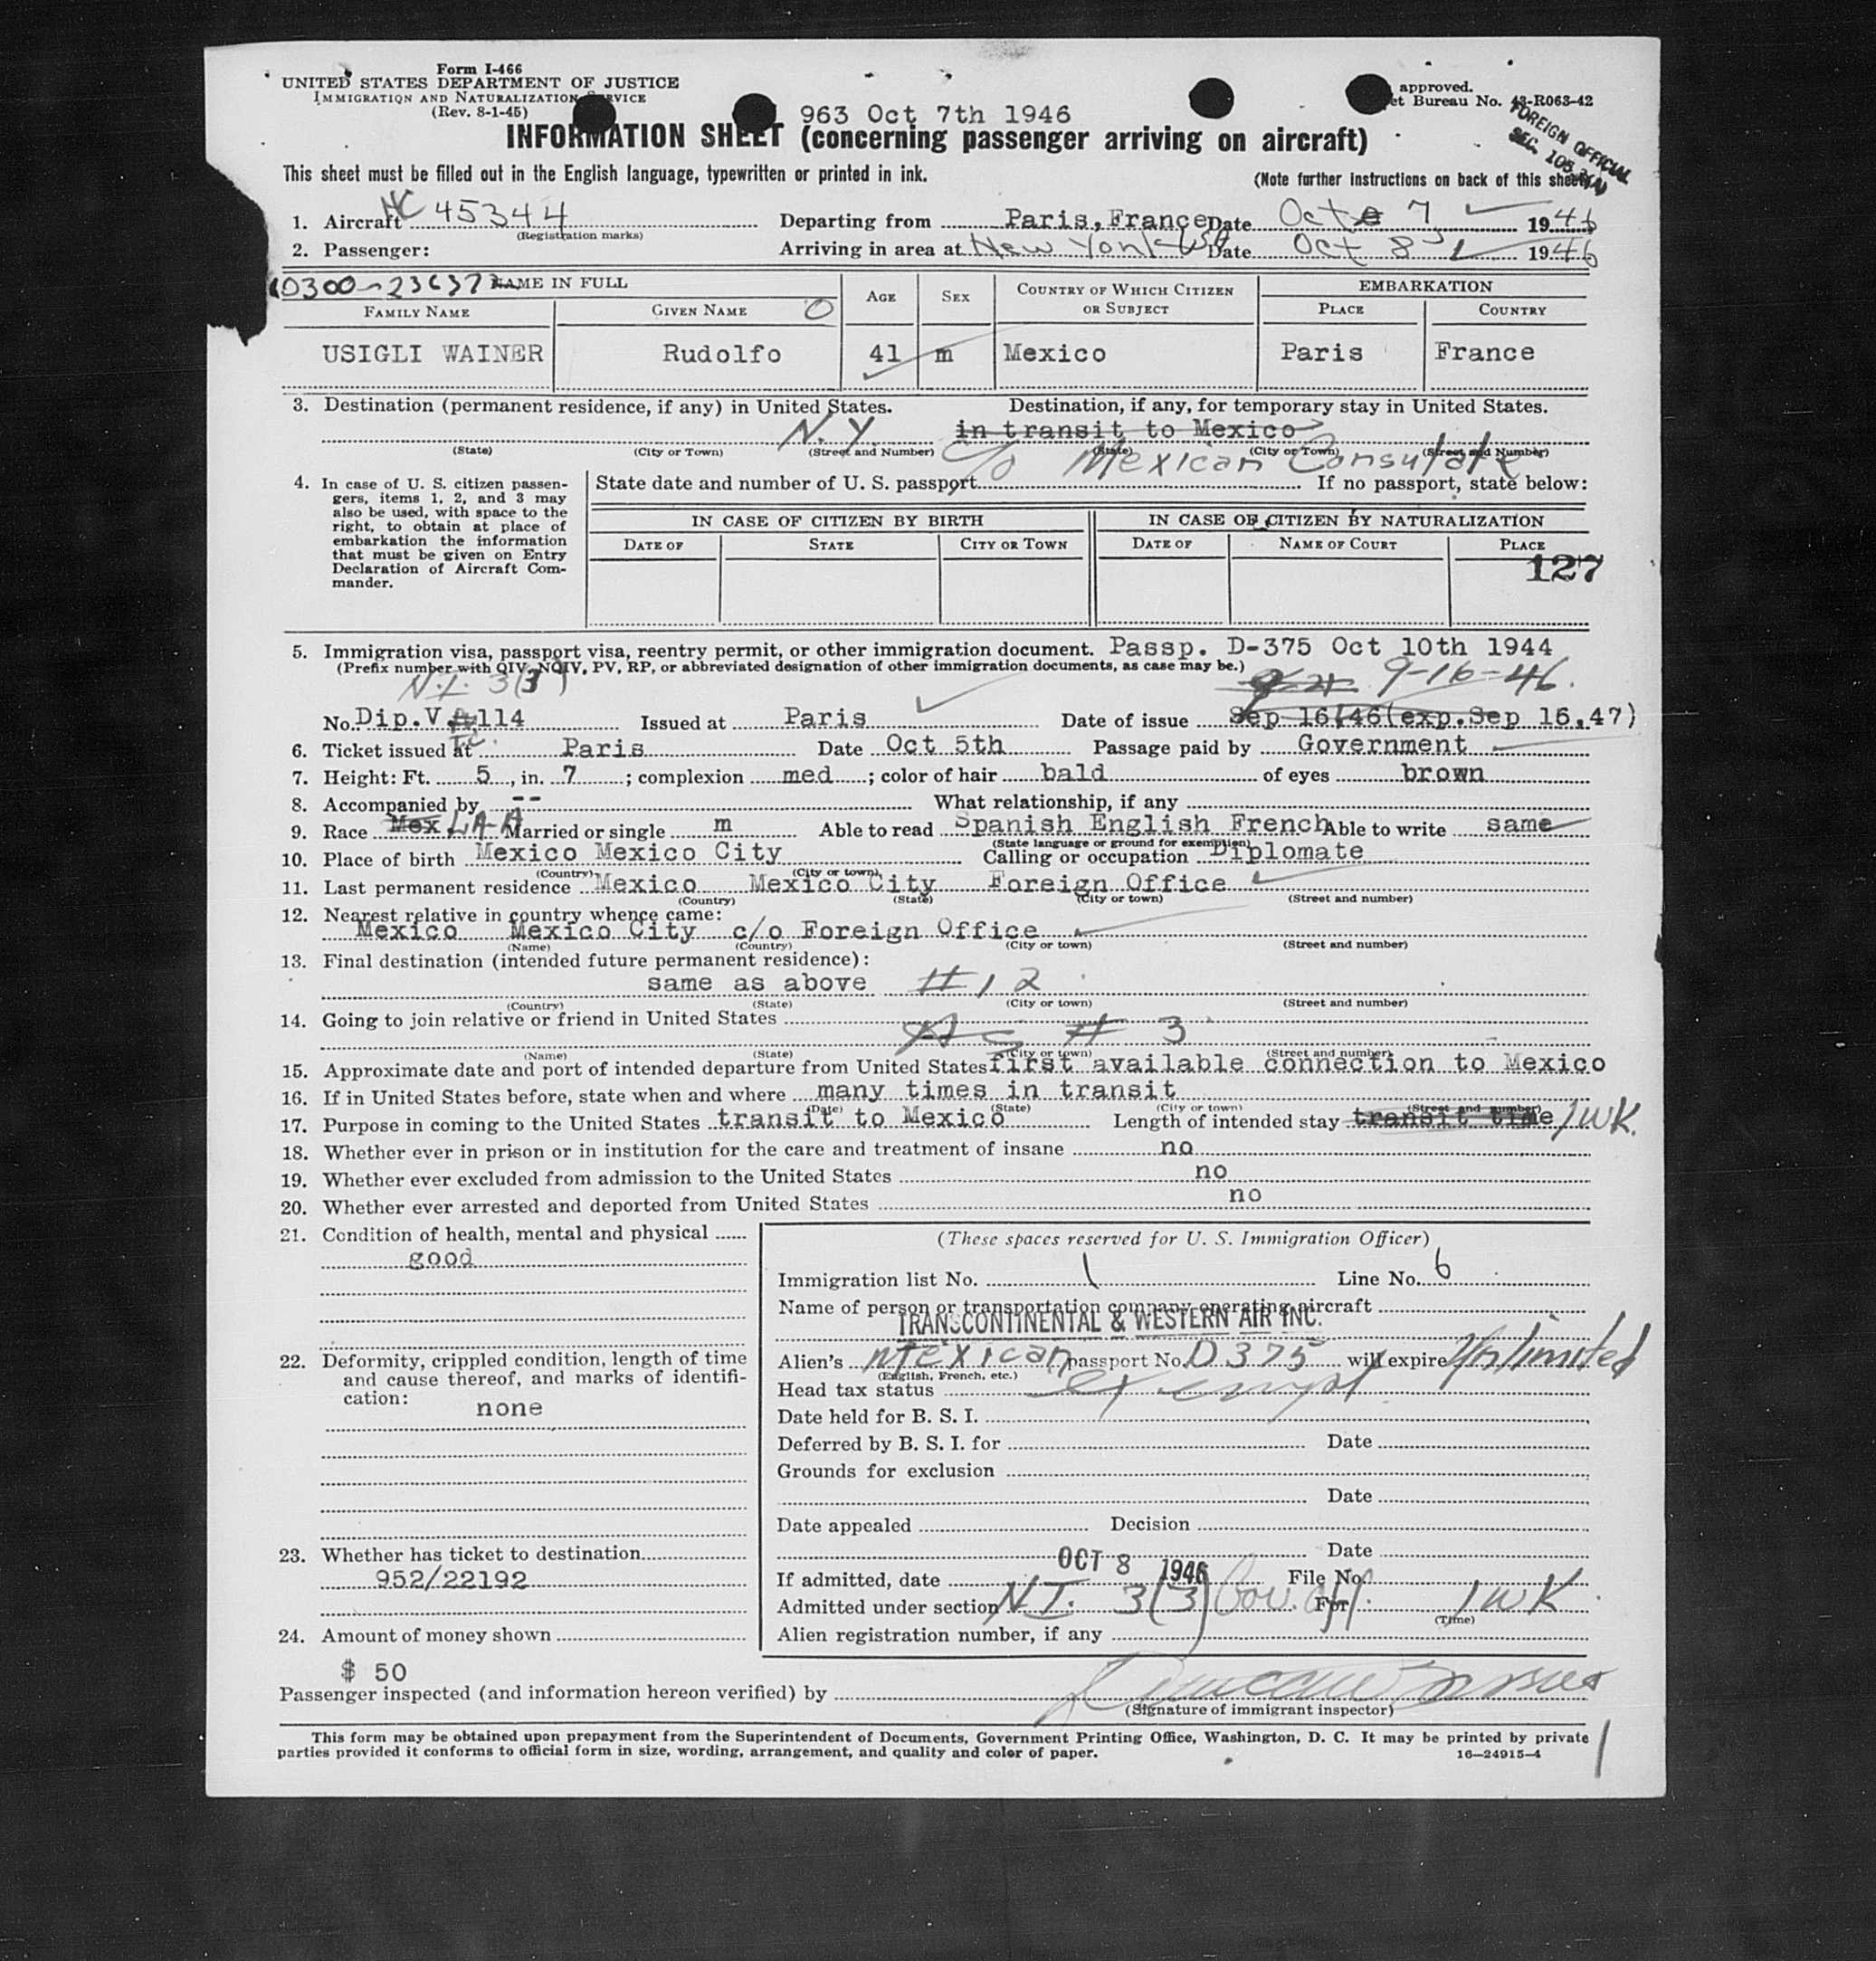 Form I-466
UNITED STATES DEPARTMENT OF JUSTICE
IMMIGRATION AND NATURALIZATION SERVICE
(Rev. 8-1-45)
approved.
et Bureau No. 43-R063-42
963 Oct 7th 1946
FOREIGN OFFICIAL
SEC. 105.3(A)
INFORMATION SHEET (concerning passenger arriving on aircraft)
This sheet must be filled out in the English language, typewritten or printed in ink. (Note further instructions on back of this sheet)
1. Aircraft NC 45344 Departing from Paris, France Date Oct 7 1946
(Registration marks)
2. Passenger: Arriving in area at New York Date Oct 8 1946
0300-23637 NAME IN FULL AGE SEX COUNTRY OF WHICH CITIZEN OR SUBJECT EMBARKATION
FAMILY NAME GIVEN NAME O PLACE COUNTRY
USIGLI WAINER Rudolfo 41 m Mexico Paris France
3. Destination (permanent residence, if any) in United States. Destination, if any, for temporary stay in United States.
N.Y. in transit to Mexico
(State) (City or Town) (Street and Number) (State) (City or Town) (Street and Number)
c/o Mexican Consulate
4. In case of U. S. citizen passengers, items 1, 2, and 3 may also be used, with space to the right, to obtain at place of embarkation the information that must be given on Entry Declaration of Aircraft Commander.
State date and number of U. S. passport If no passport, state below:
IN CASE OF CITIZEN BY BIRTH IN CASE OF CITIZEN BY NATURALIZATION
DATE OF STATE CITY OR TOWN DATE OF NAME OF COURT PLACE
127
5. Immigration visa, passport visa, reentry permit, or other immigration document. Passp. D-375 Oct 10th 1944
(Prefix number with QIV, NQIV, PV, RP, or abbreviated designation of other immigration documents, as case may be.)
N.I. 3(3) 9-16-46.
No. Dip.V.#114 Issued at Paris Date of issue Sep 16,46(exp.Sep 16,47)
6. Ticket issued at Paris Date Oct 5th Passage paid by Government
7. Height: Ft. 5, in. 7; complexion med; color of hair bald of eyes brown
8. Accompanied by -- What relationship, if any
9. Race Mex LA-A Married or single m Able to read Spanish English French Able to write same
(State language or ground for exemption)
10. Place of birth Mexico Mexico City Calling or occupation Diplomate
(Country) (City or town)
11. Last permanent residence Mexico Mexico City Foreign Office
(Country) (State) (City or town) (Street and number)
12. Nearest relative in country whence came:
Mexico Mexico City c/o Foreign Office
(Name) (Country) (City or town) (Street and number)
13. Final destination (intended future permanent residence):
same as above #12
(Country) (State) (City or town) (Street and number)
14. Going to join relative or friend in United States
As # 3
(Name) (State) (City or town) (Street and number)
15. Approximate date and port of intended departure from United States first available connection to Mexico
16. If in United States before, state when and where many times in transit
(Date) (State) (City or town) (Street and number)
17. Purpose in coming to the United States transit to Mexico Length of intended stay transit time 1 WK.
18. Whether ever in prison or in institution for the care and treatment of insane no
19. Whether ever excluded from admission to the United States no
20. Whether ever arrested and deported from United States no
21. Condition of health, mental and physical
good
22. Deformity, crippled condition, length of time and cause thereof, and marks of identification:
none
23. Whether has ticket to destination
952/22192
24. Amount of money shown
$ 50
(These spaces reserved for U. S. Immigration Officer)
Immigration list No. 1 Line No. 6
Name of person or transportation company operating aircraft
TRANSCONTINENTAL & WESTERN AIR INC.
Alien's Mexican passport No. D375 will expire Unlimited
(English, French, etc.)
Head tax status exempt
Date held for B. S. I.
Deferred by B. S. I. for Date
Grounds for exclusion
Date
Date appealed Decision
Date
If admitted, date OCT 8 1946 File No.
Admitted under section N.I. 3(3) Gov. off. For 1 WK
(Time)
Alien registration number, if any
Passenger inspected (and information hereon verified) by
(Signature of immigrant inspector)
This form may be obtained upon prepayment from the Superintendent of Documents, Government Printing Office, Washington, D. C. It may be printed by private
parties provided it conforms to official form in size, wording, arrangement, and quality and color of paper. 16—24915-4